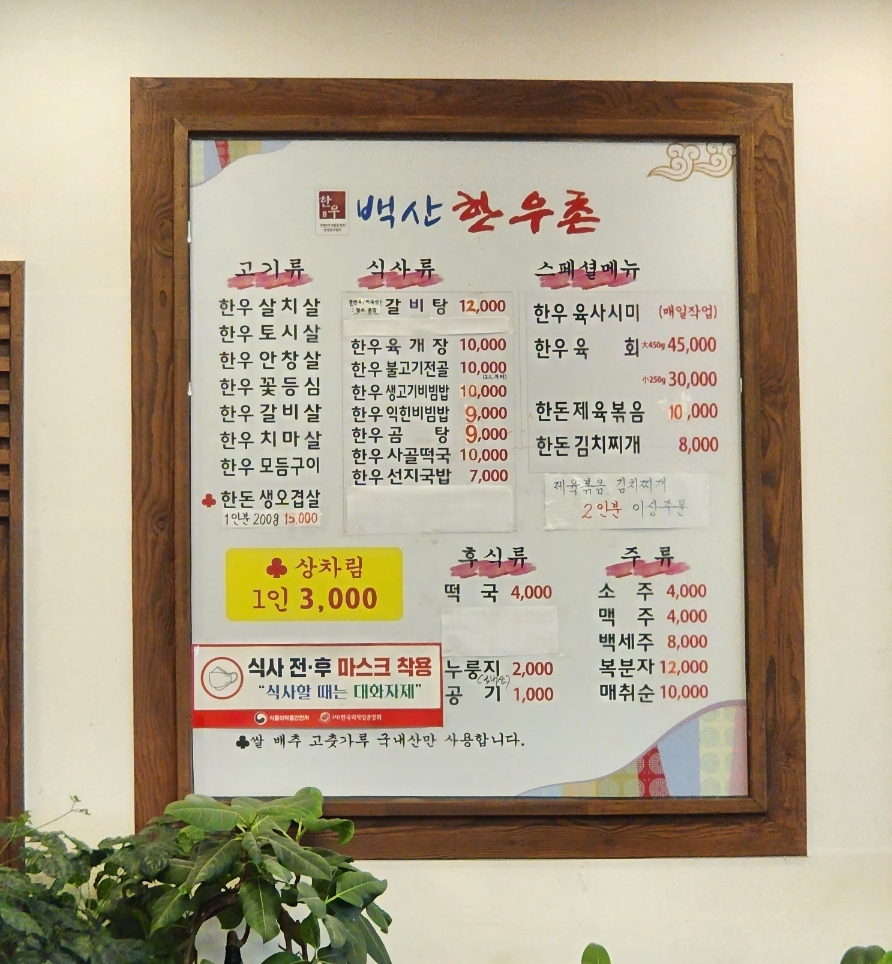 한우
백산 한우촌
고기류
한우 살치살
한우 토시살
한우 안창살
한우 꽃등심
한우 갈비살
한우 치마살
한우 모듬구이
♣ 한돈 생오겹살
1인분 200g 15,000
♣ 상차림
1인 3,000
식사류
갈비탕 12,000
한우 육개장 10,000
한우 불고기전골 10,000
한우 생고기비빔밥 10,000
한우 익힌비빔밥 9,000
한우 곰탕 9,000
한우 사골떡국 10,000
한우 선지국밥 7,000
스페셜메뉴
한우 육사시미 (매일작업)
한우 육회 大450g 45,000
小250g 30,000
한돈 제육볶음 10,000
한돈 김치찌개 8,000
제육볶음, 김치찌개
2인분 이상주문
후식류
떡국 4,000
누룽지 2,000
공기 1,000
주류
소주 4,000
맥주 4,000
백세주 8,000
복분자 12,000
매취순 10,000
식사 전·후 마스크 착용
“식사할 때는 대화자제”
식품의약품안전처 (사)한국외식업중앙회
♣쌀 배추 고춧가루 국내산만 사용합니다.